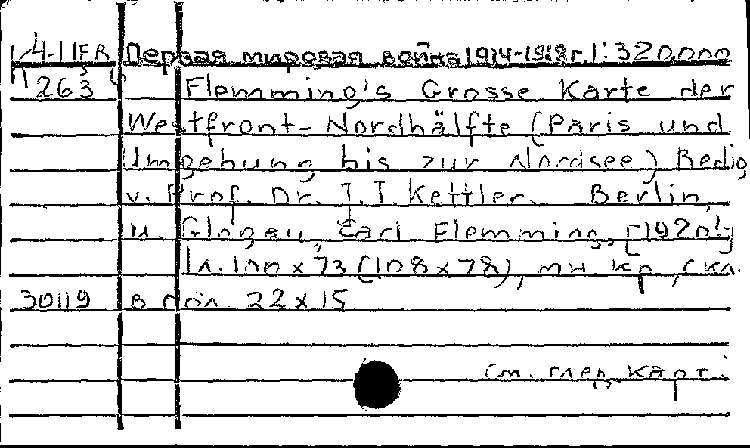 Первая мировая война 1914-1918 г. 1:320,000
263 Flemming's Grosse Karte der
Westfront-Nordhälfte (Paris und
Umgebung bis zur Nordsee) Redig
v. Prof. Dr. I. I. Kettler. Berlin,
u. Glogau, Carl Flemming,
1 л. 100 x 73 (108 x 78), мн. кр.,
30119 в 22 x 15
см. след. карт.